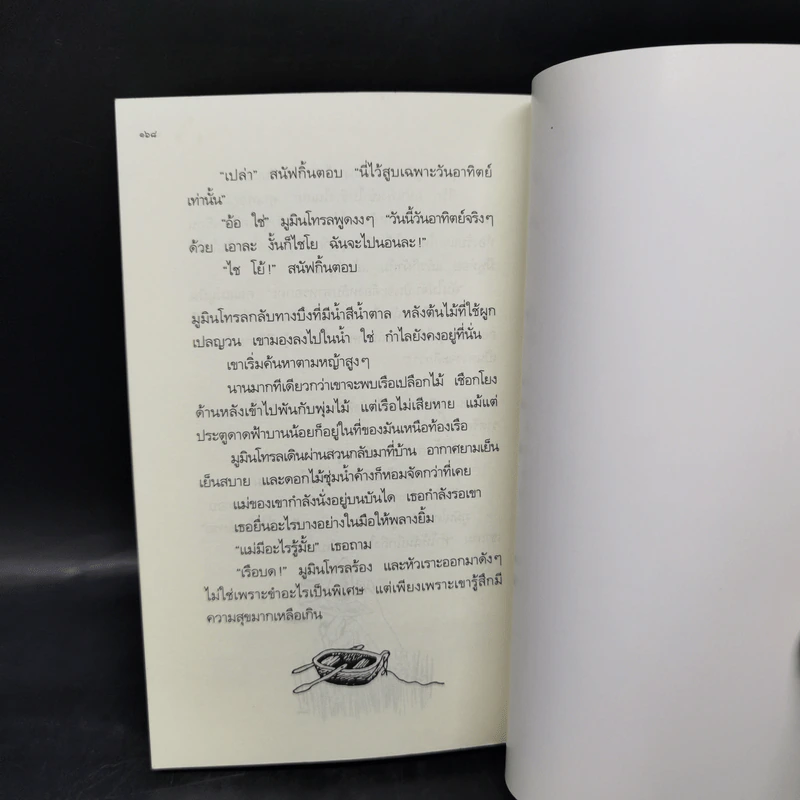 ๑๖๘
“เปล่า” สนัฟกิ้นตอบ “นี่ไว้สูบเฉพาะวันอาทิตย์
เท่านั้น”
“อ้อ ใช่” มูมินโทรลพูดงงๆ “วันนี้วันอาทิตย์จริงๆ
ด้วย เอาละ งั้นก็ไชโย ฉันจะไปนอนละ!”
“ไช โย้!” สนัฟกิ้นตอบ
มูมินโทรลกลับทางบึงที่มีน้ำสีน้ำตาล หลังต้นไม้ที่ใช้ผูก
เปลญวน เขามองลงไปในน้ำ ใช่ กำไลยังคงอยู่ที่นั่น
เขาเริ่มค้นหาตามหญ้าสูงๆ
นานมากทีเดียวกว่าเขาจะพบเรือเปลือกไม้ เชือกโยง
ด้านหลังเข้าไปพันกับพุ่มไม้ แต่เรือไม่เสียหาย แม้แต่
ประตูดาดฟ้าบานน้อยก็อยู่ในที่ของมันเหนือท้องเรือ
มูมินโทรลเดินผ่านสวนกลับมาที่บ้าน อากาศยามเย็น
เย็นสบาย และดอกไม้ชุ่มน้ำค้างก็หอมจัดกว่าที่เคย
แม่ของเขากำลังนั่งอยู่บนบันได เธอกำลังรอเขา
เธอยื่นอะไรบางอย่างในมือให้พลางยิ้ม
“แม่มีอะไรรู้มั้ย” เธอถาม
“เรือบด!” มูมินโทรลร้อง และหัวเราะออกมาดังๆ
ไม่ใช่เพราะขำอะไรเป็นพิเศษ แต่เพียงเพราะเขารู้สึกมี
ความสุขมากเหลือเกิน